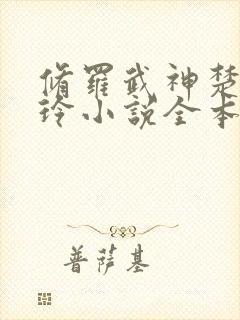 脩羅武神楚
玲小説全本
普薩基